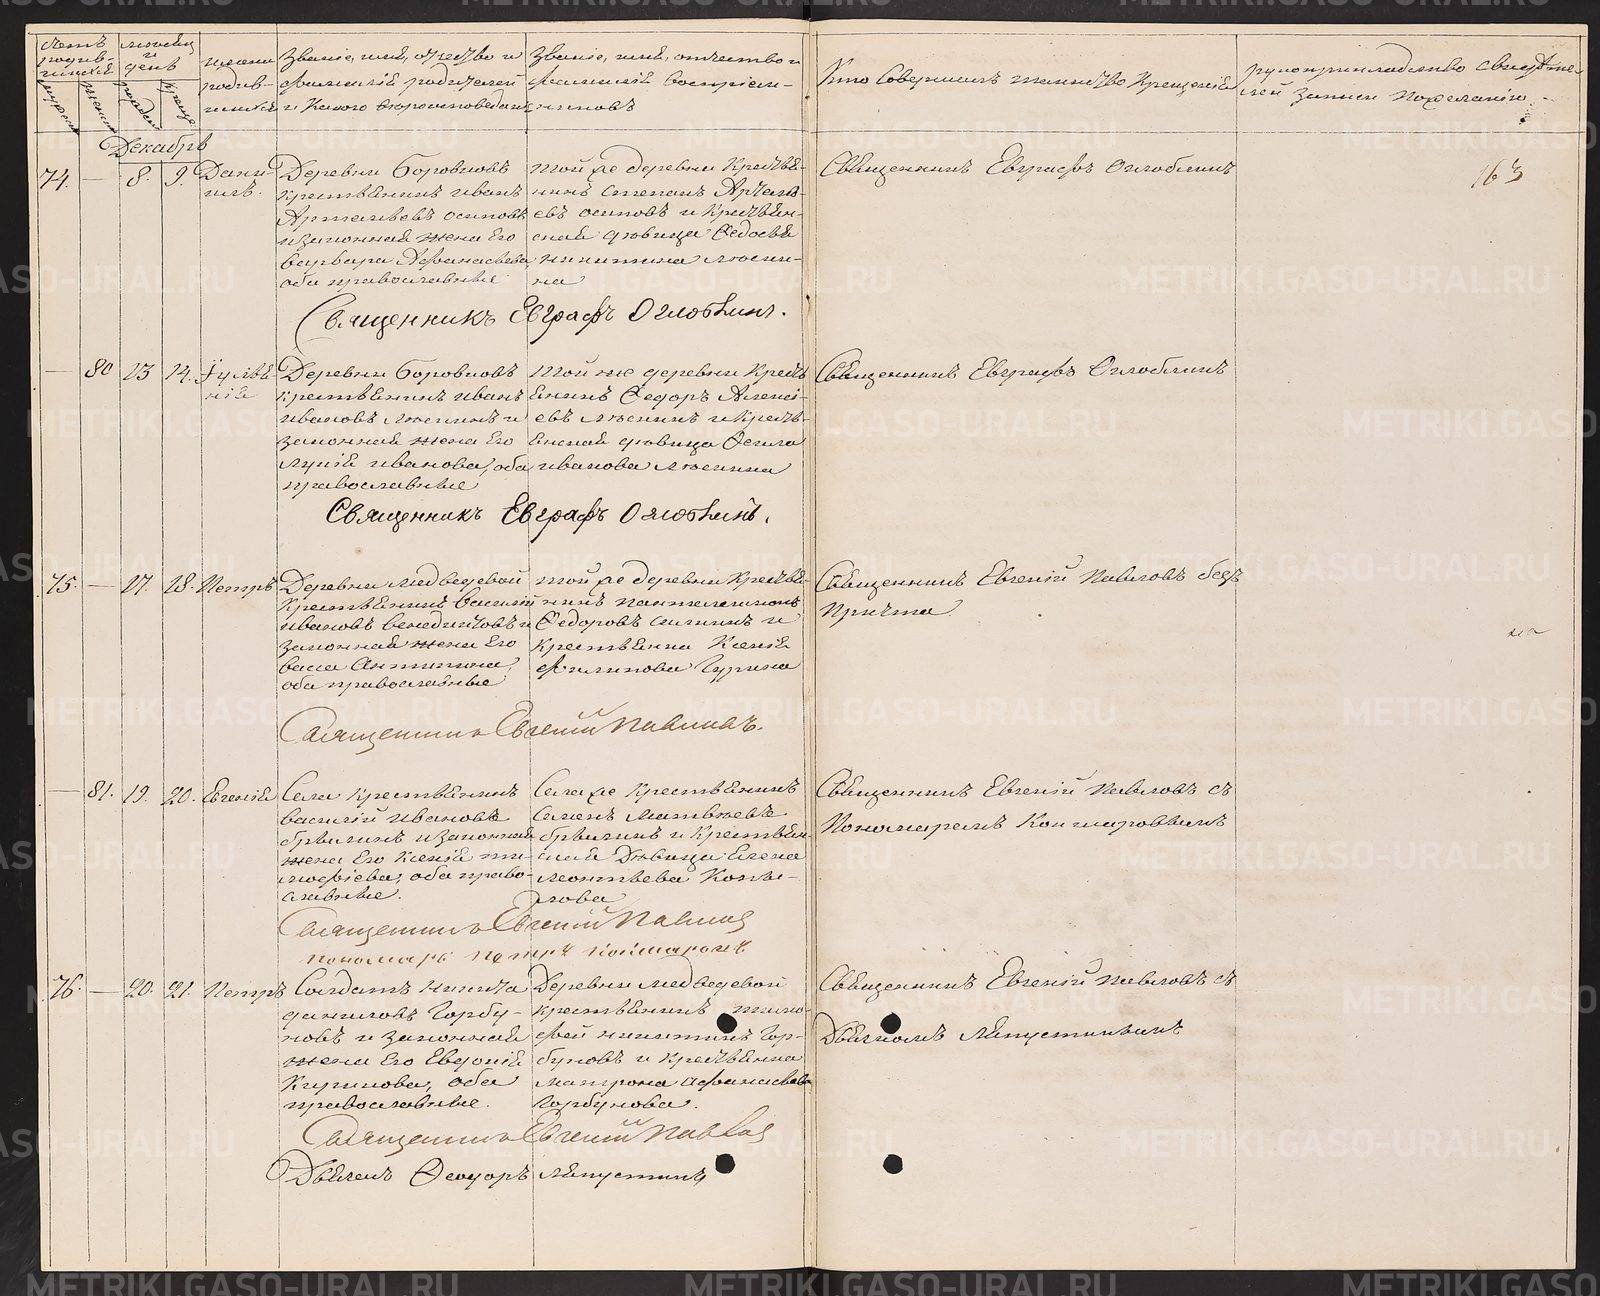 Счетъ родив-шихся
мѣсяцъ и день
имена родив-шихся
Званіе, имя, отчество и фамилія родителей и какого вѣроисповѣданія
Званіе, имя, отчество и фамилія воспріем-никовъ
Кто совершалъ таинство крещенія
рукоприкладство свидѣте-лей записи по желанію
Декабрь
163
74. — 8. 9. Дані-илъ.
Деревни Боровиковъ
крестьянинъ Иванъ
Артемьевъ Осиповъ
и законная жена его
Варвара Афанасьева
оба православные
той же деревни крестья-
нинъ Степанъ Артемь-
евъ Осиповъ и крестьян-
ская дѣвица Федосья
Никитина
Священникъ Евграфъ Оглоблинъ
Священникъ Евграфъ Оглоблинъ.
— 80 13 14. Іулia-нія
Деревни Боровиковъ
крестьянинъ Иванъ
Ивановъ и
законная жена его
Ивanова, оба
православные
той же деревни кресть
янинъ Федоръ Алексѣ-
евъ и кресть-
янская дѣвица
Иванова
Священникъ Евграфъ Оглоблинъ
Священникъ Евграфъ Оглоблинъ.
75. — 17. 18. Петръ
Деревни Медведевой
крестьянинъ Василій
Ивановъ Венедиктовъ и
законная жена его
Васса Антипина,
оба православные
той же деревни крестья-
нинъ Пантелеимонъ
Федоровъ и
крестьянка Ксенія
Филипова Гурина
Священникъ Евгеній Павловъ безъ
причта
Священникъ Евгеній Павловъ.
— 81. 19. 20. Евгенія
Села крестьянинъ
Василій Ивановъ
и законная
жена его Ксенія Ти-
мофѣева, оба право-
славные.
Села же крестьянинъ
Семенъ Матвѣевъ
и крестьян-
ская дѣвица Елена
Леонтьева Копы-
лова
Священникъ Евгеній Павловъ съ
Пономаремъ
Священникъ Евгеній Павловъ
пономарь Петръ
76. — 20. 21. Петръ
Солдатъ Никита
Даниловъ Горбу-
новъ и законная
жена его Евдокія
Кирилова, оба
православные.
Деревни Медведевой
крестьянинъ Тимо-
фей Никитинъ Гор-
буновъ и крестьянка
Матрона Афанасьева
Горбунова.
Священникъ Евгеній Павловъ съ
Дьячкомъ Ляпустинымъ
Священникъ Евгеній Павловъ
Дьячекъ Феодоръ Ляпустинъ
METRIKI.GASO-URAL.RU